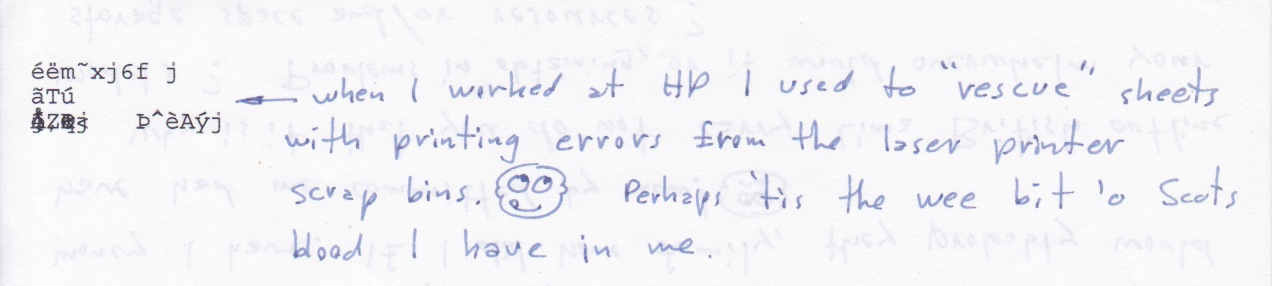 éëm~xj6f j
ãTú
Þ^èAýj
when I worked at HP I used to "rescue" sheets
with printing errors from the laser printer
scrap bins. Perhaps 'tis the wee bit 'o Scots
blood I have in me.